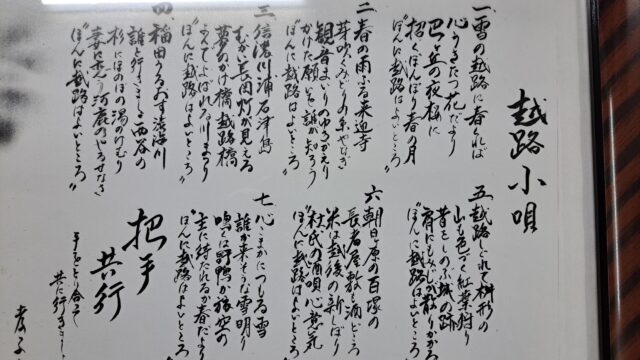 越路小唄
一、雪の越路に春くれば
心うきたつ花だより
巴ヶ丘の夜桜に
招くぼんぼり春の月
“ほんに越路はよいところ”
二、春の雨ふる来迎寺
芽吹くみどりの糸やなぎ
観音まいりのゆきかえり
かけた願いを誰が知ろう
“ほんに越路はよいところ”
三、信濃川浦石津島
むかい長岡灯が見える
夢のかけ橋越路橋
こえてよばれる川まつり
“ほんに越路はよいところ”
四、稲田うるおす渋海川
誰と行きましょ西谷の
杉にほのぼの湯のけむり
妻に恋う河鹿のやるせなさ
“ほんに越路はよいところ”
五、越路しぐれて桝形の
山も色づく紅葉狩り
昔をしのぶ城の跡
肩にもみじが散りかかる
“ほんに越路はよいところ”
六、朝日ヶ原の百塚の
長者屋敷と酒どころ
米は越後の新しぼり
杜氏の酒唄心意気
“ほんに越路はよいところ”
七、心こまかにつもる雪
誰か来そうな雪明り
鳴くは野鴨か旅空の
主に待たれるか春だより
“ほんに越路はよいところ”
把手
共行
手をとり合って
共に行きま